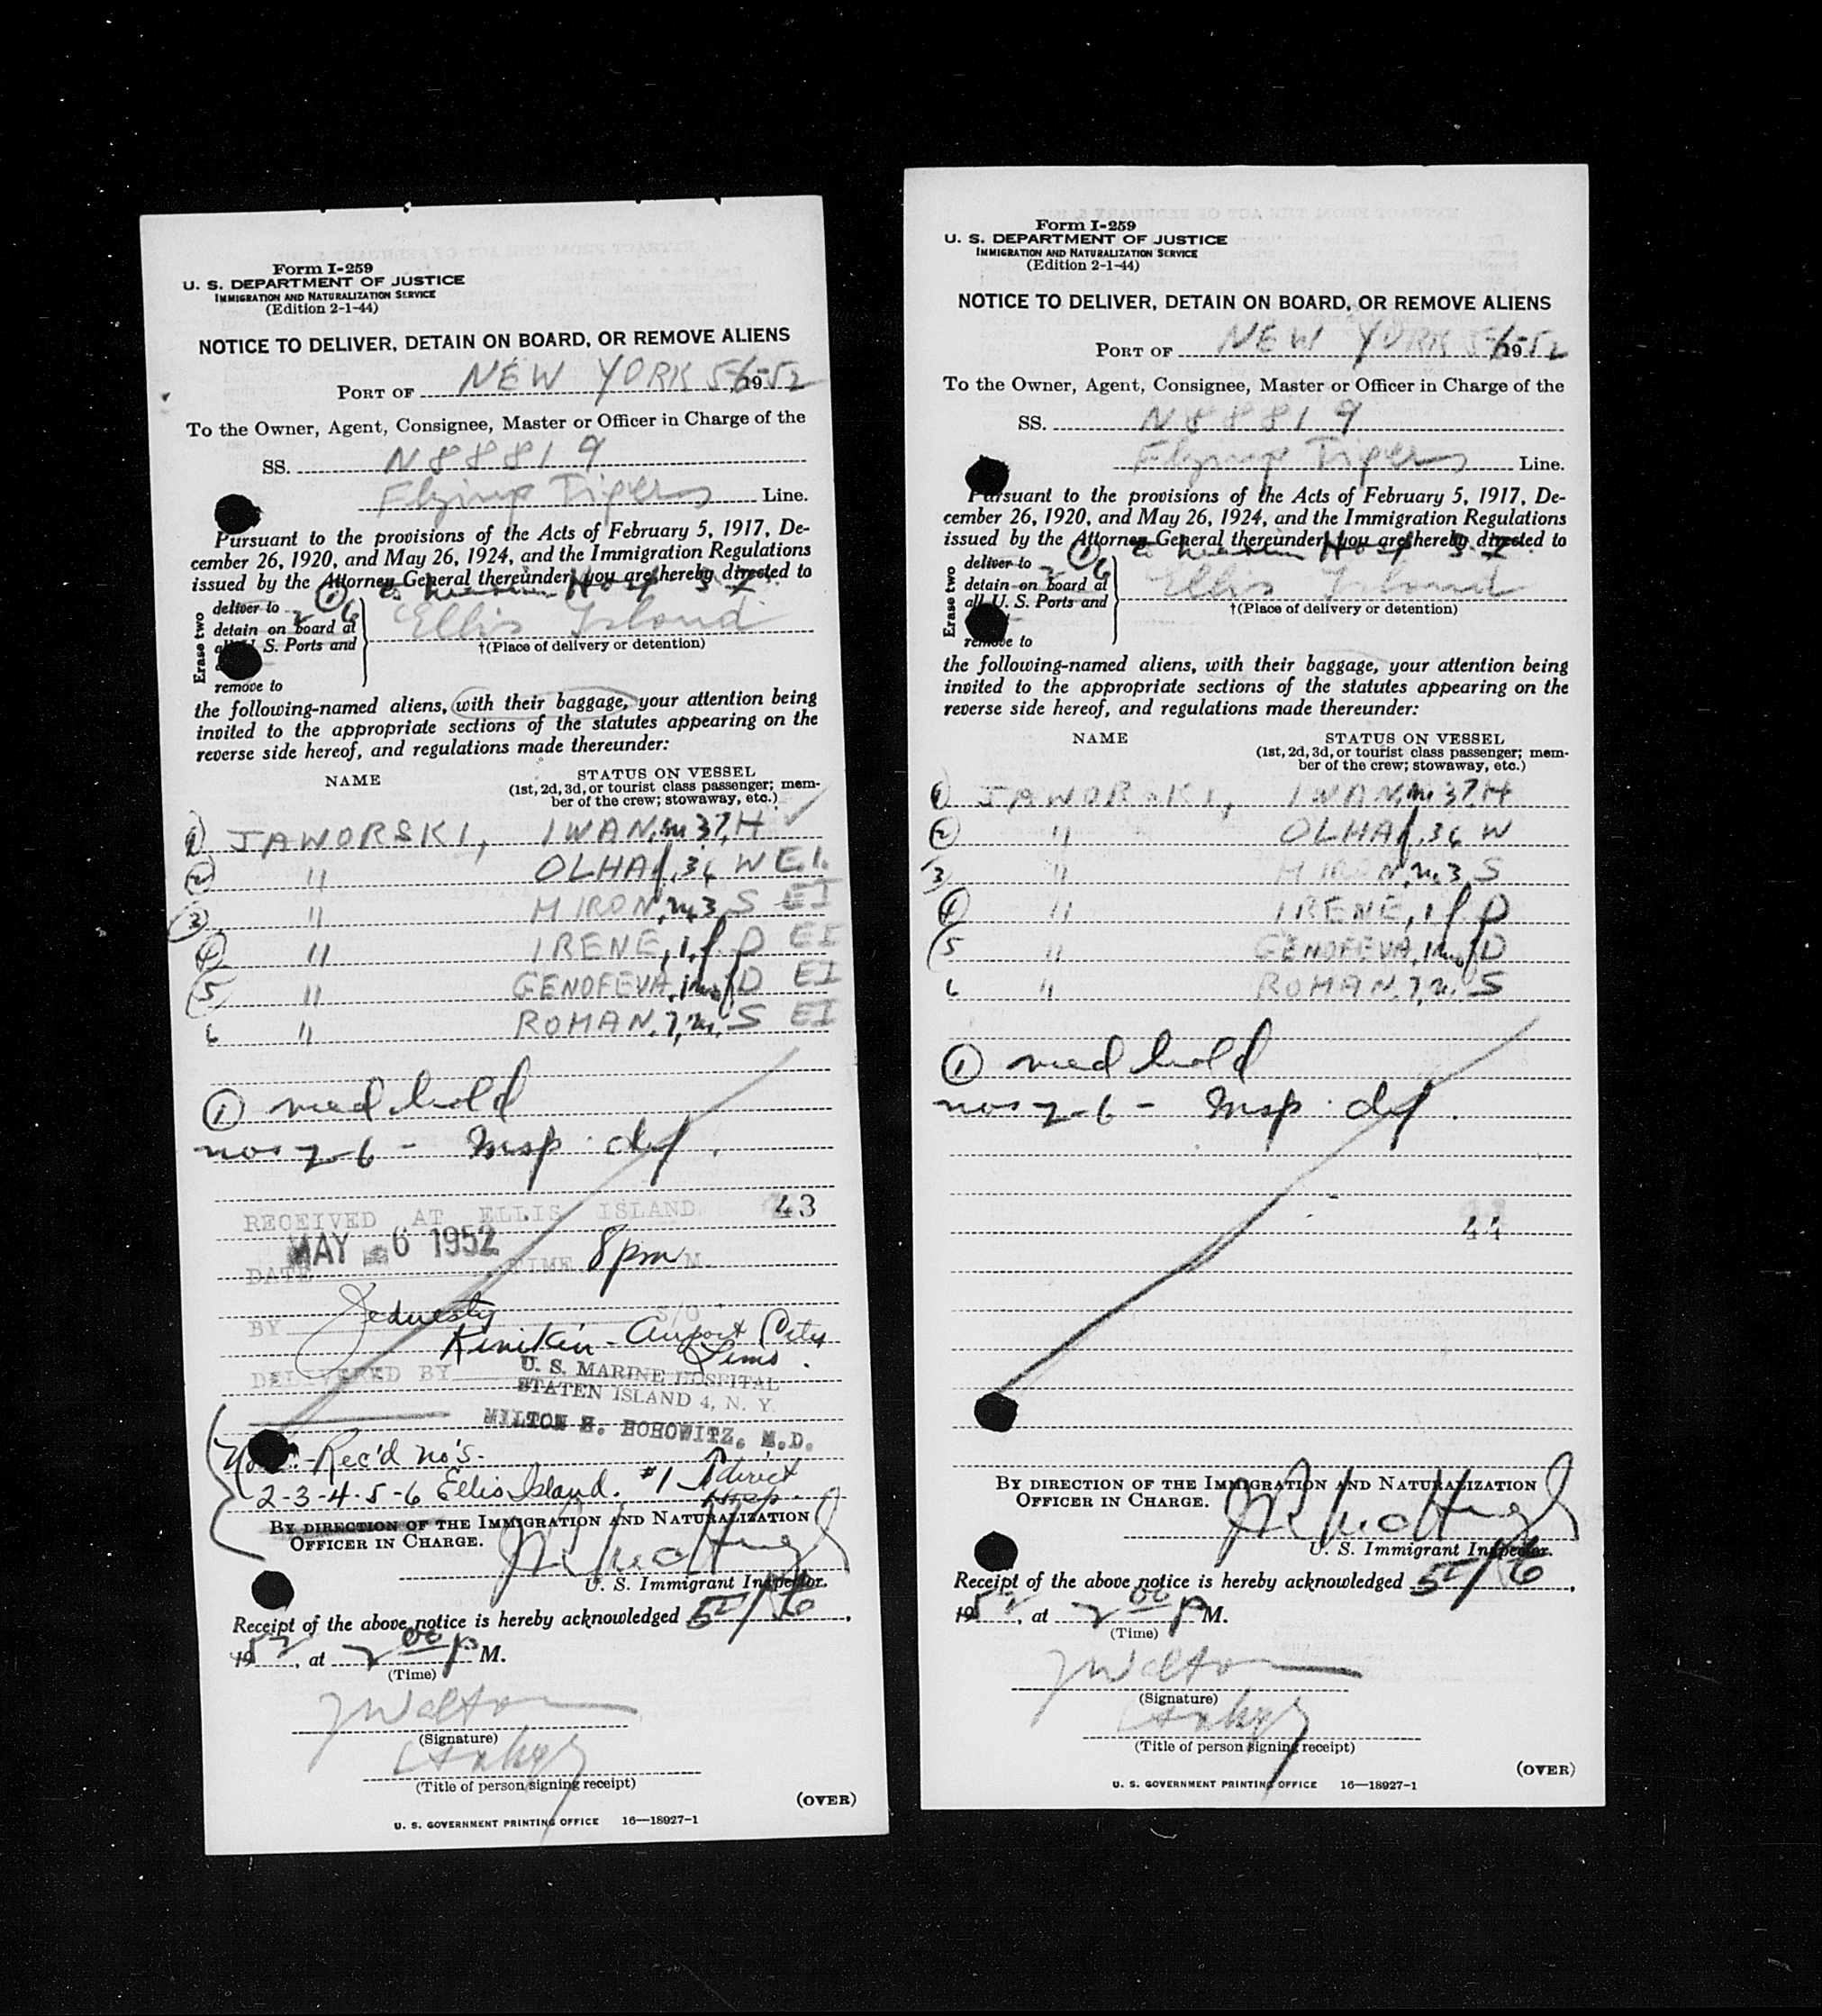 Form I-259
U. S. DEPARTMENT OF JUSTICE
IMMIGRATION AND NATURALIZATION SERVICE
(Edition 2-1-44)
NOTICE TO DELIVER, DETAIN ON BOARD, OR REMOVE ALIENS
PORT OF NEW YORK 5-6-, 1952
To the Owner, Agent, Consignee, Master or Officer in Charge of the
SS. N88819
Flying Tigers Line.
Pursuant to the provisions of the Acts of February 5, 1917, De-
cember 26, 1920, and May 26, 1924, and the Immigration Regulations
issued by the Attorney General thereunder, you are hereby directed to
① Hosp S. I.
Erase two
deliver to 2-6
detain on board at
S. Ports and
remove to
Ellis Island
†(Place of delivery or detention)
the following-named aliens, with their baggage, your attention being
invited to the appropriate sections of the statutes appearing on the
reverse side hereof, and regulations made thereunder:
NAME STATUS ON VESSEL
(1st, 2d, 3d, or tourist class passenger; mem-
ber of the crew; stowaway, etc.)
① JAWORSKI, IWAN, m 37, H ✓
② " OLHA f, 36 W E.I.
③ " MIRON, m, 3 S EI
④ " IRENE, 1, f D EI
⑤ " GENOFEVA, f D EI
6 " ROMAN, 7, m, S EI
① med hold
nos 2-6 - Insp. def.
RECEIVED AT ELLIS ISLAND 43
MAY 6 1952
DATE TIME 8 pm M.
BY S/O
Kinikin - Airport City
Limo.
DELIVERED BY
U. S. MARINE HOSPITAL
STATEN ISLAND 4, N. Y.
MILTON H. HOROWITZ, M.D.
Rec'd no's.
2-3-4-5-6 Ellis Island. #1 direct
Hosp.
BY DIRECTION OF THE IMMIGRATION AND NATURALIZATION
OFFICER IN CHARGE.
U. S. Immigrant Inspector.
Receipt of the above notice is hereby acknowledged 5/6,
1952, at 2 00 P M.
(Time)
J Walton
(Signature)
(Title of person signing receipt)
(OVER)
U. S. GOVERNMENT PRINTING OFFICE 16—18927-1
Form I-259
U. S. DEPARTMENT OF JUSTICE
IMMIGRATION AND NATURALIZATION SERVICE
(Edition 2-1-44)
NOTICE TO DELIVER, DETAIN ON BOARD, OR REMOVE ALIENS
PORT OF NEW YORK 5-6-1952
To the Owner, Agent, Consignee, Master or Officer in Charge of the
SS. N88819
Flying Tigers Line.
Pursuant to the provisions of the Acts of February 5, 1917, De-
cember 26, 1920, and May 26, 1924, and the Immigration Regulations
issued by the Attorney General thereunder, you are hereby directed to
① Hosp S. I.
Erase two
deliver to 2-6
detain on board at
all U. S. Ports and
remove to
Ellis Island
†(Place of delivery or detention)
the following-named aliens, with their baggage, your attention being
invited to the appropriate sections of the statutes appearing on the
reverse side hereof, and regulations made thereunder:
NAME STATUS ON VESSEL
(1st, 2d, 3d, or tourist class passenger; mem-
ber of the crew; stowaway, etc.)
① JAWORSKI, IWAN, m 37, H
② " OLHA f, 36 W
3 " MIRON, m, 3 S
④ " IRENE, 1 f D
5 " GENOFEVA, f D
6 " ROMAN, 7, m, S
① med hold
nos 2-6 - Insp. def.
44
BY DIRECTION OF THE IMMIGRATION AND NATURALIZATION
OFFICER IN CHARGE.
U. S. Immigrant Inspector.
Receipt of the above notice is hereby acknowledged 5/6,
1952, at 2 00 P M.
(Time)
J Walton
(Signature)
(Title of person signing receipt)
(OVER)
U. S. GOVERNMENT PRINTING OFFICE 16—18927-1